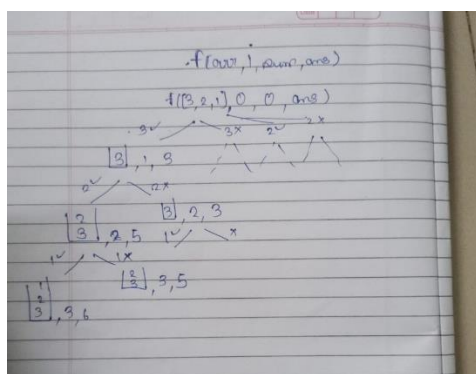 f(arr, i, sum, ans)
f([3,2,1], 0, 0, ans)
3✓ 3× 2✓ 2×
[3], 1, 3
2✓ 2×
2
3, 2, 5 [3], 2, 3
1✓ 1× 1✓ ×
1
2
3, 3, 6 2
3, 3, 5